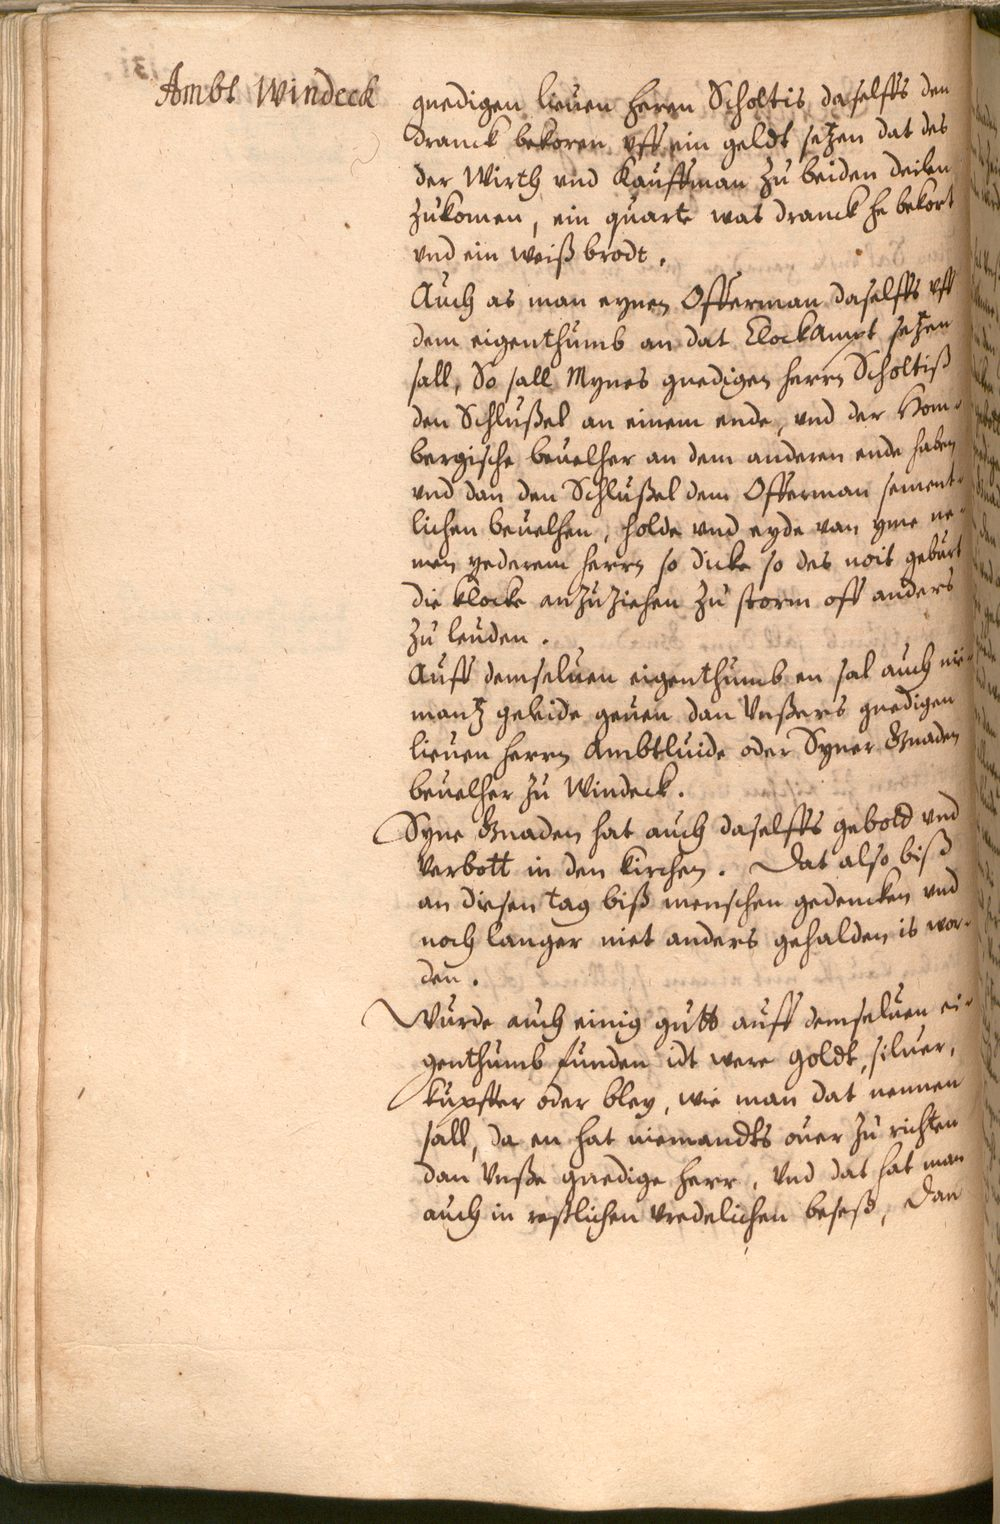 Ambt Windeck
gnedigen lieuen herrn Scholtis daselffs den
dranck bekoren vff ein geldt setzen dat des
der Wirth vnd Kauffman zu beiden deilen
zukomen, ein quarte was dranck he bekort
vnd ein weiß brodt.
Auch as man eynen Offerman daselffs vff
dem eigenthumb an dat Clockampt setzen
sall, So sall Mynes gnedigen herrn Scholtiß
den Schlußel an einem ende, vnd der Hom-
bergische beuelher an dem anderen ende haben
vnd dan den Schlußel dem Offerman sement-
lichen beuelhen, holde vnd eyde van yme ne-
men yederem herrn so dicke so des noit geburt
die klocke anzuziehen zu storm off anders
zu leuden.
Auff demseluen eigenthumb en sal auch nie-
mantz geleide geuen dan Vnßers gnedigen
lieuen herrn Ambtluide oder Syner Gnaden
beuelher zu Windeck.
Syne Gnaden hat auch daselffs gebott vnd
Verbott in den kirchen. Dat also biß
an diesen tag biß menschen gedencken vnd
noch langer niet anders gehalden is wor-
den.
Wurde auch einig gutt auff demseluen ei-
genthumb funden idt were goldt, siluer,
kupffer oder bley, wie man dat nennen
sall, da en hat niemandts ouer zu richten
dan Vnße gnedige herr, Vnd dat hat man
auch in restlichen vredelichen beseß, Dan